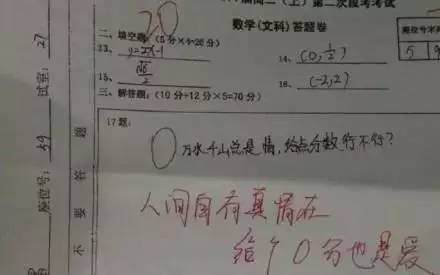 届高二（上）第二次段考考试
数学(文科)答题卷
20
二、填空题:(5分×4=20分)
13、y=2x-1
14、(0,1/2)
15、√6/2
16、(-2,2)
三、解答题:(10分+12分×5=70分)
17题:
0
万水千山总是情,给点分数行不行?
人间自有真情在
给个0分也是爱
试室: 27
座位号: 59
不要答题